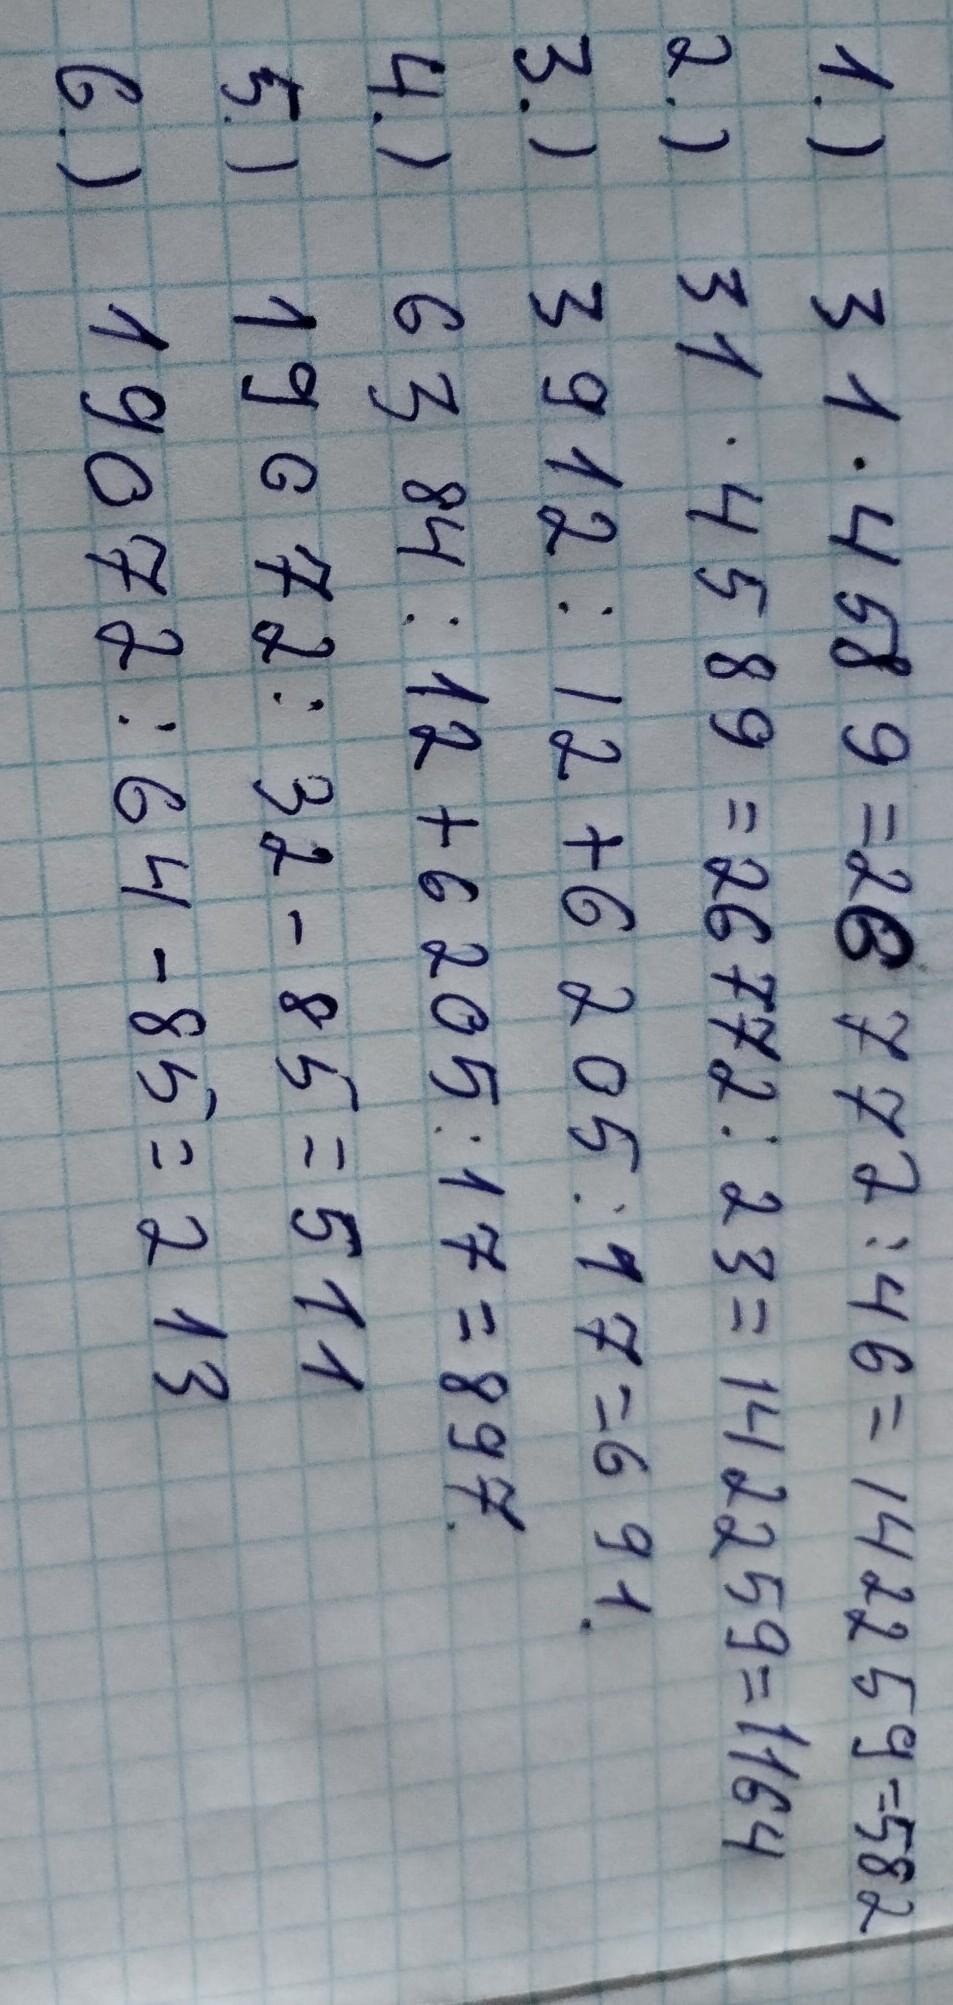 1.) 31·4589=26772:46=142259=582
2.) 31·4589=26772:23=142259=1164
3.) 3912:12+6205:17=691.
4.) 6384:12+6205:17=897.
5.) 19072:32-85=511
6.) 19072:64-85=213